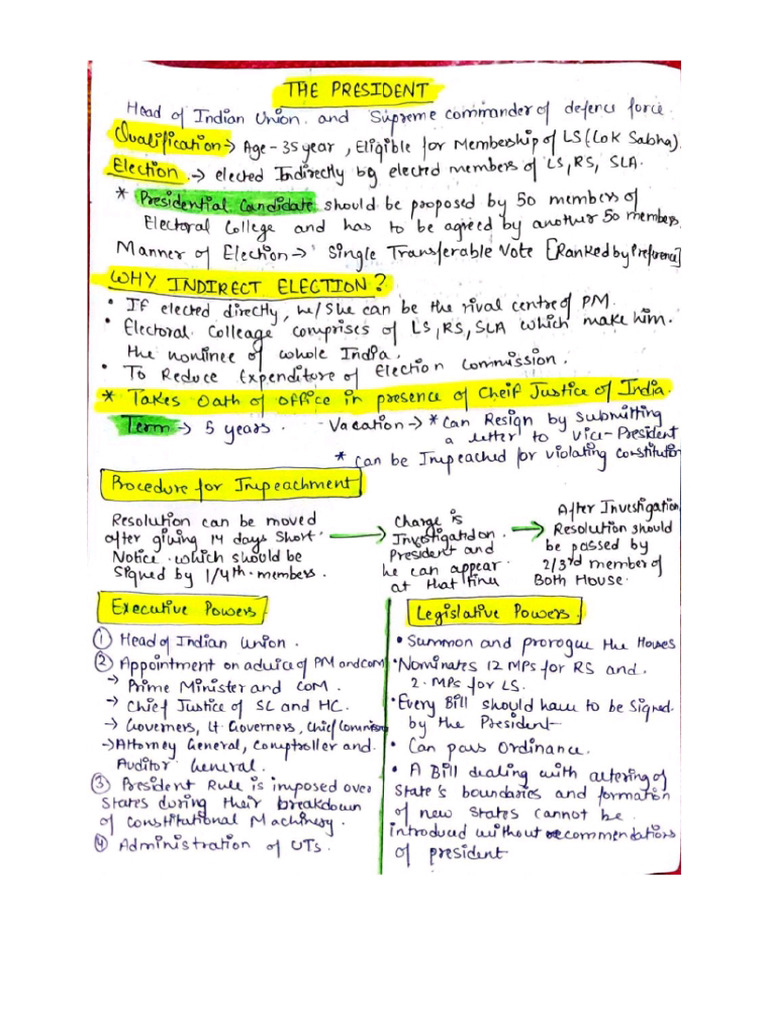 THE PRESIDENT
Head of Indian Union. and Supreme commander of defence force.
Qualification → Age - 35 year, Eligible for Membership of LS (Lok Sabha)
Election → elected Indirectly by elected members of LS, RS, SLA.
* Presidential Candidate should be proposed by 50 members of
Electoral College and has to be agreed by another 50 members.
Manner of Election → Single Transferable Vote [Ranked by Preference]
WHY INDIRECT ELECTION?
• If elected directly, he/she can be the rival centre of PM.
• Electoral Colleage comprises of LS, RS, SLA which make him.
the nominee of whole India.
• To Reduce Expenditure of Election Commission.
* Takes Oath of office in presence of Cheif Justice of India.
Term → 5 years. Vacation → * can Resign by submitting
a letter to Vice-President
* can be Impeached for violating constitution
Procedure for Impeachment
Resolution can be moved
after giving 14 days Short
Notice which should be
Signed by 1/4th members.
→ Charge is
Investigated on.
President and
he can appear
at that time
→ After Investigation
Resolution should
be passed by
2/3rd member of
Both House.
Executive Powers.
① Head of Indian Union.
② Appointment on advice of PM and COM
→ Prime Minister and COM.
→ Chief Justice of SC and HC.
→ Governers, Lt Governers, Chief Commiss
→ Attorney General, Comptroller and
Auditor General.
③ President Rule is imposed over
States during their breakdown
of Constitutional Machinery.
④ Administration of UTs.
Legislative Powers.
• Summon and prorogue the Houses
• Nominates 12 MPs for RS and.
2. MPs for LS.
• Every Bill should have to be Signed.
by the President
• Can pass Ordinance.
• A Bill dealing with altering of
State's boundaries and formation
of new States cannot be.
introduced without recommendations
of president